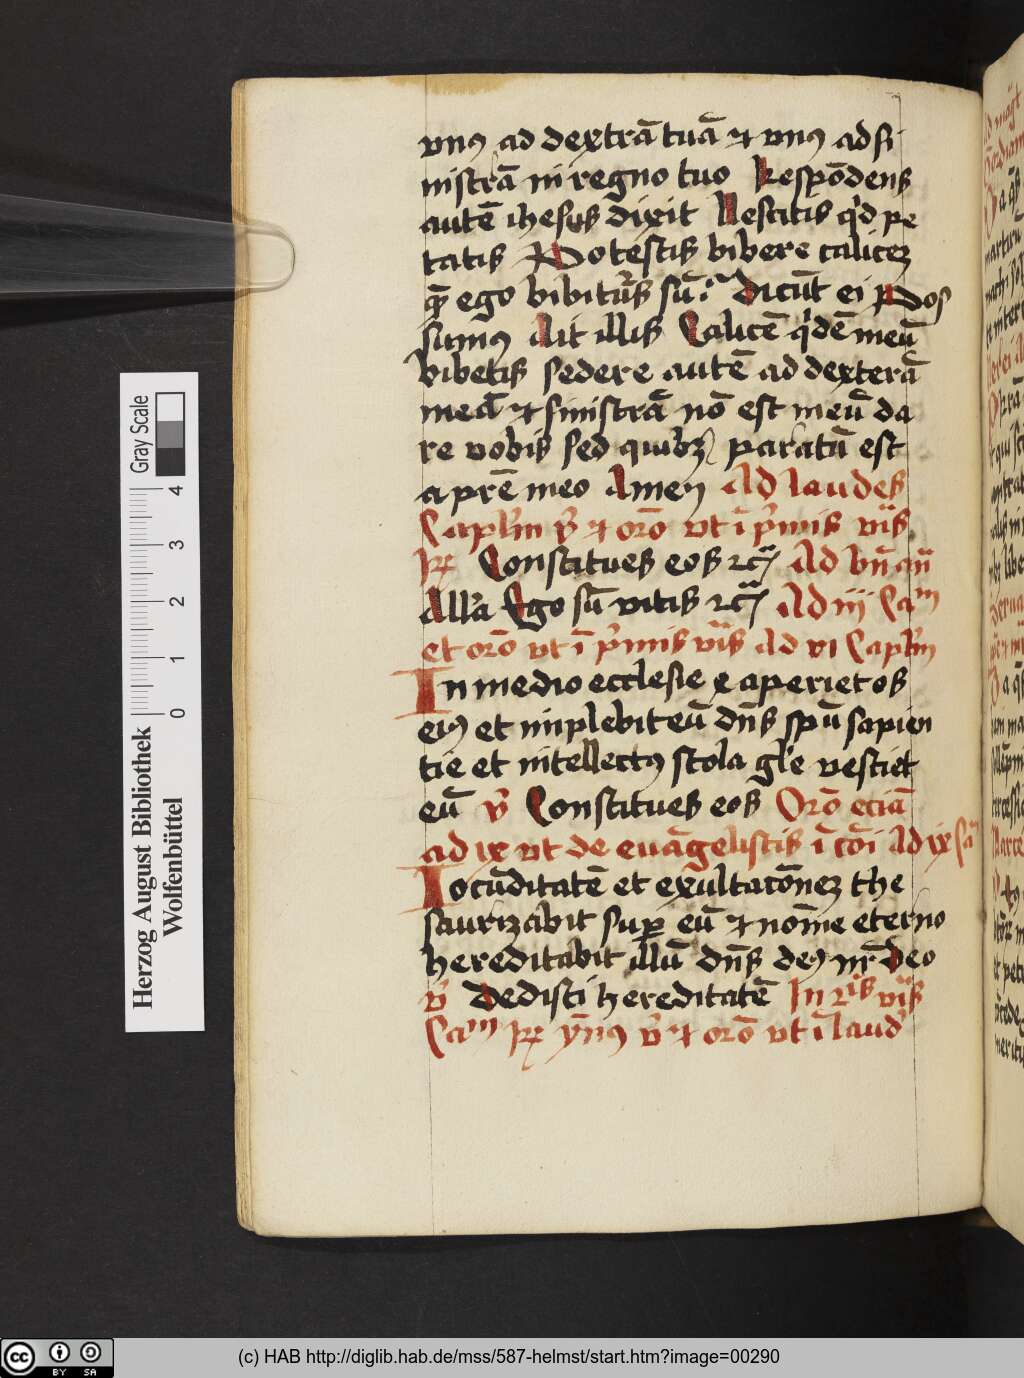 vnꝰ ad dextrā tuā ⁊ vnꝰ ad si
nistrā in regno tuo Respōdens
autē ihesus dixit Nescitis qͥd pe
tatis Potestis bibere caliceꝫ
quē ego bibitur̄s sū Dicūt ei Pos
sumꝰ Ait illis Calicē qͥdē meū
bibetis sedere autē ad dexterā
meā ⁊ sinistrā nō est meū da
re vobis sed quibꝫ paratū est
a prē meo Amen Ad laudes
Capłm v̄ ⁊ orō vt ī pͥmis vīs
pꝫ Constitues eos ⁊c̄ Ad bn̄ an̄
All'a Ego sū vitis ⁊c̄ Ad iij Caᵐ
et orō vt ī pͥmis vīs Ad vi Capłm
In medio ecclesie e aperiet os
eiꝰ et implebit eū dn̄s spū sapien
tie et intellectꝰ stola gl'e vestiet
eū v̄ Constitues eos Orō eciā
ad ix vt de euāgelistis ī cōi Ad ix Ca
Iocūditatē et exultacōneꝫ the
saurizabit suꝑ eū ⁊ nōīe eterno
hereditabit illū dn̄s deꝰ nr̄ Deo
v̄ Dedisti hereditatē In 2ͥs vīs
Caᵐ pꝫ ympnꝰ v̄ ⁊ orō vt ī laud'
Gray Scale
4
3
2
1
0
Herzog August Bibliothek
Wolfenbüttel
cc BY SA
(c) HAB http://diglib.hab.de/mss/587-helmst/start.htm?image=00290